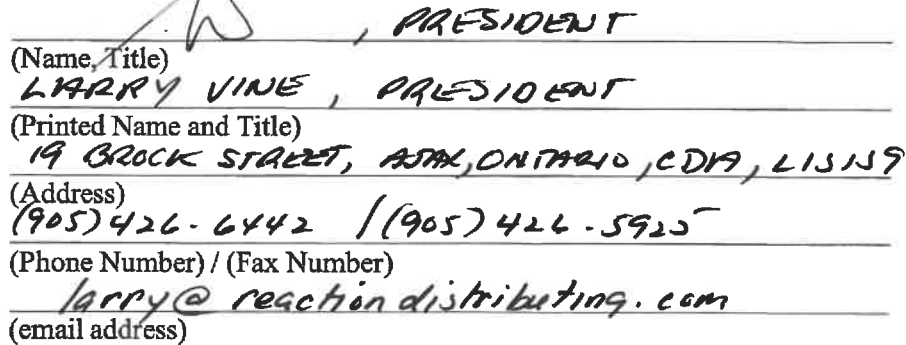 , PRESIDENT
(Name, Title)
LARRY VINE, PRESIDENT
(Printed Name and Title)
19 BROCK STREET, AJAX, ONTARIO, CDA, L1S1S9
(Address)
(905) 426-6442 / (905) 426-5925
(Phone Number) / (Fax Number)
larry@reactiondistributing.com
(email address)